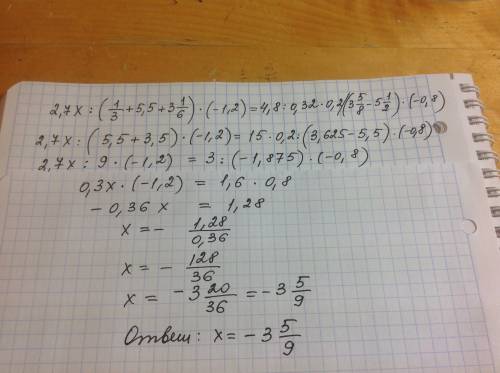 2,7x : (1/3 + 5,5 + 3 1/6) · (-1,2) = 4,8 : 0,32 · 0,2 : (3 5/8 - 5 1/2) · (-0,8)
2,7x : (5,5 + 3,5) · (-1,2) = 15 · 0,2 : (3,625 - 5,5) · (-0,8)
2,7x : 9 · (-1,2) = 3 : (-1,875) · (-0,8)
0,3x · (-1,2) = 1,6 · 0,8
- 0,36 x = 1,28
x = - 1,28/0,36
x = - 128/36
x = -3 20/36 = -3 5/9
Ответ: x = -3 5/9